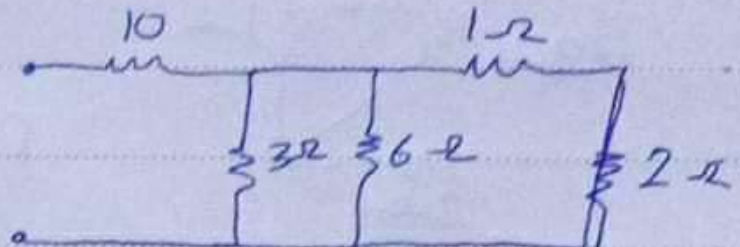 10 1Ω
3Ω 6Ω 2Ω